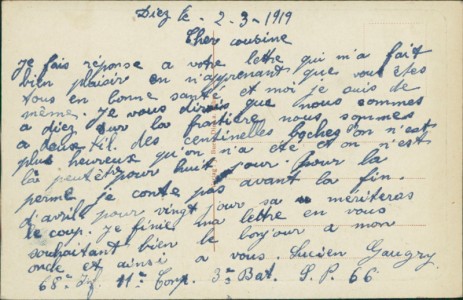 Diez le - 2 - 3 - 1919
Cher cousine
Je fais réponse a votre lettre qui m'a fait
bien plaisir en m'apprenant que vous êtes
tous en bonne santé et moi je suis de
même. Je vous dirais que nous sommes
a diez sur la frontière nous sommes
a deux des centinelles boches on n'est
plus heureux qu'on n'a été et on n'est
là peutêtre pour huit jour. pour la
perme je conte pas avant la fin
d'avril pour vingt jour sa méritera
le coup. Je finie ma lettre en vous
souhaitant bien le bonjour a mon
oncle et ainsi a vous. Lucien Gaugry
68e If. 11e Comp. 3e Bat. S.P. 66